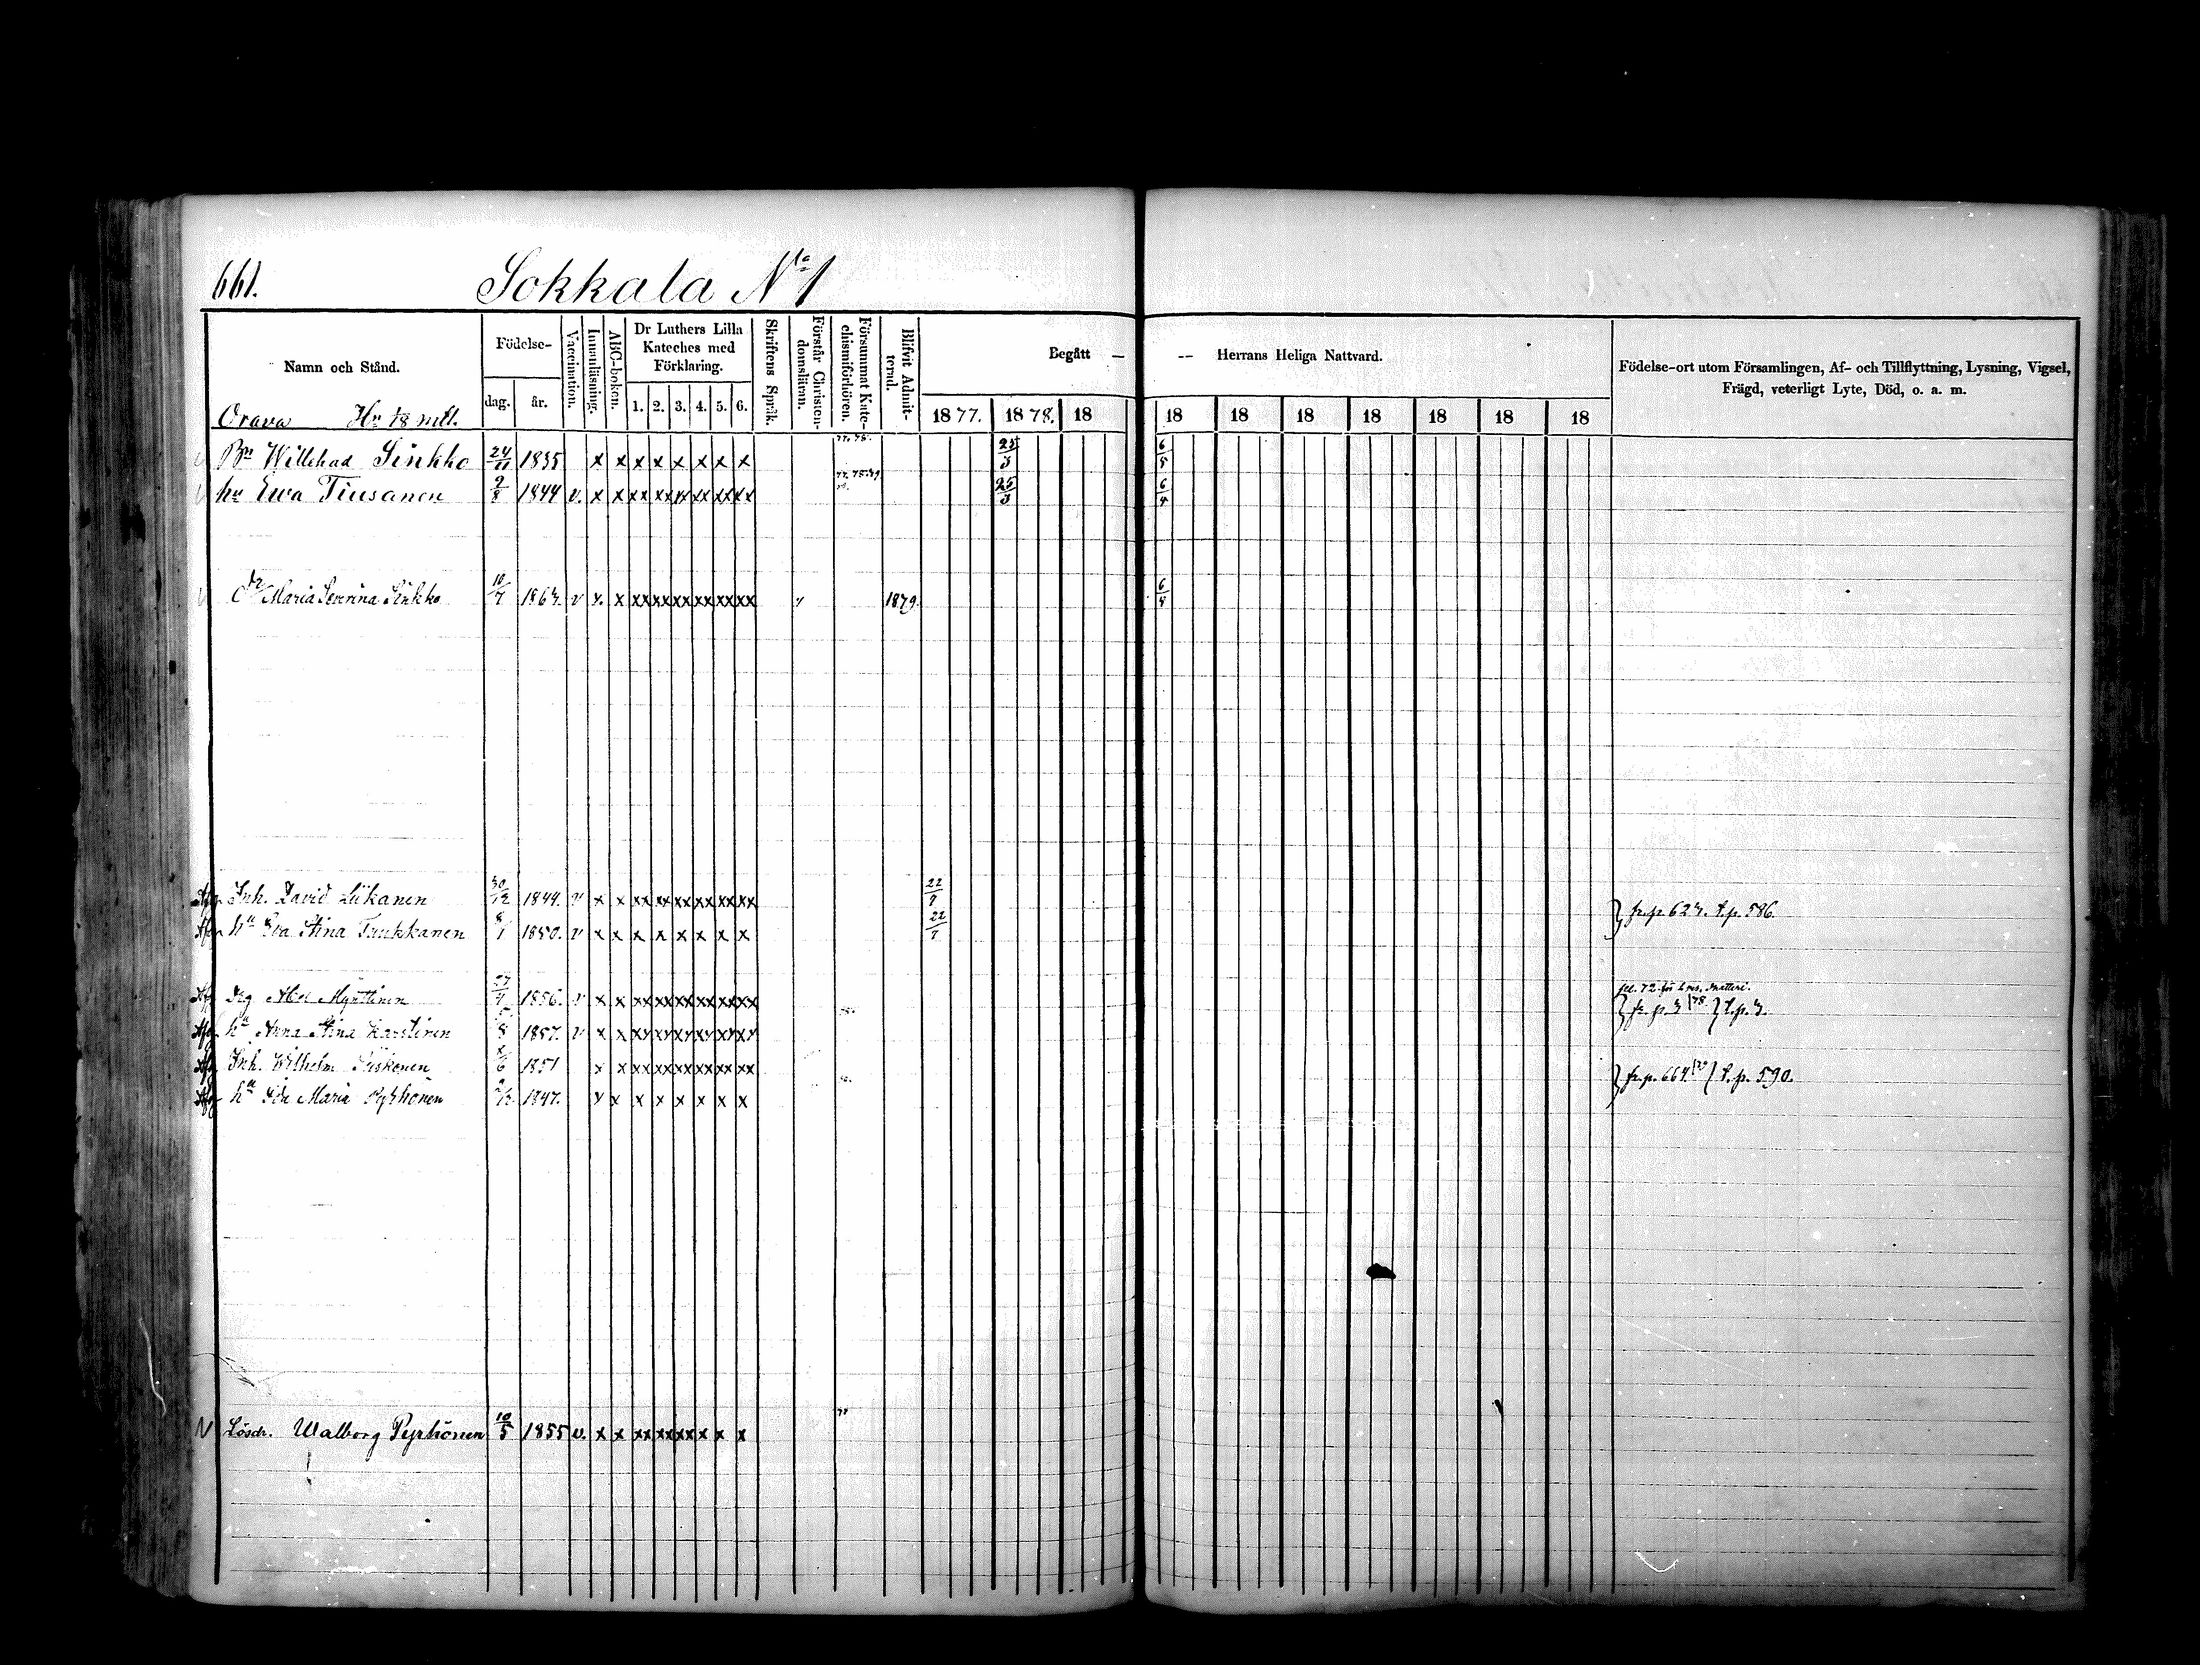 661. Sokkala No 1
Namn och Stånd. Födelse- dag. år. Vaccination. Innanläsning. ABC-boken. Dr Luthers Lilla Kateches med Förklaring. 1. 2. 3. 4. 5. 6. Skriftens Språk. Förstår Christendomsläran. Försummat Katechismiförhören. Blifvit Admitterad. Begått Herrans Heliga Nattvard. Födelse-ort utom Församlingen, Af- och Tillflyttning, Lysning, Vigsel, Frägd, veterligt Lyte, Död, o. a. m.
1877. 1878. 18 18 18 18 18 18 18 18
Orava Hn 1/8 mtl.
Bn Willehad Sinkko 24/11 1835 x x x x x x x x 77. 78. 25/3 6/5
hu Ewa Tiusanen 9/8 1844 v. x x xx xx xx xx xx xx 25/3 6/4
dr Maria Severina Sinkko 10/7 186 v x. x xx xx xx xx xx xx v 1879. 6/4
Afg Inh. David Liikanen 30/12 1844. v x x xx xx xx xx xx xx 22/7 fr. p. 624. t. p. 586.
Afg hu Eva Stina Tuukkanen 8/1 1850. v x x x x x x x x 22/7
Afg Abel Myntinen 27/4 1856. v x x xx xx xx xx xx xx
hu Anna Stina 8 1857. v x x xx xx xx xx xx xx
Afg Inh. Wilhelm 6 1851 x x xx xx xx xx xx xx fr. p. 664. t. p. 590.
Afg hu Maria Pyrhönen 1847. x x x x x x x x
Lösdr. Walborg Pyrhönen 10/5 1855 v. x x xx xx xx x x x